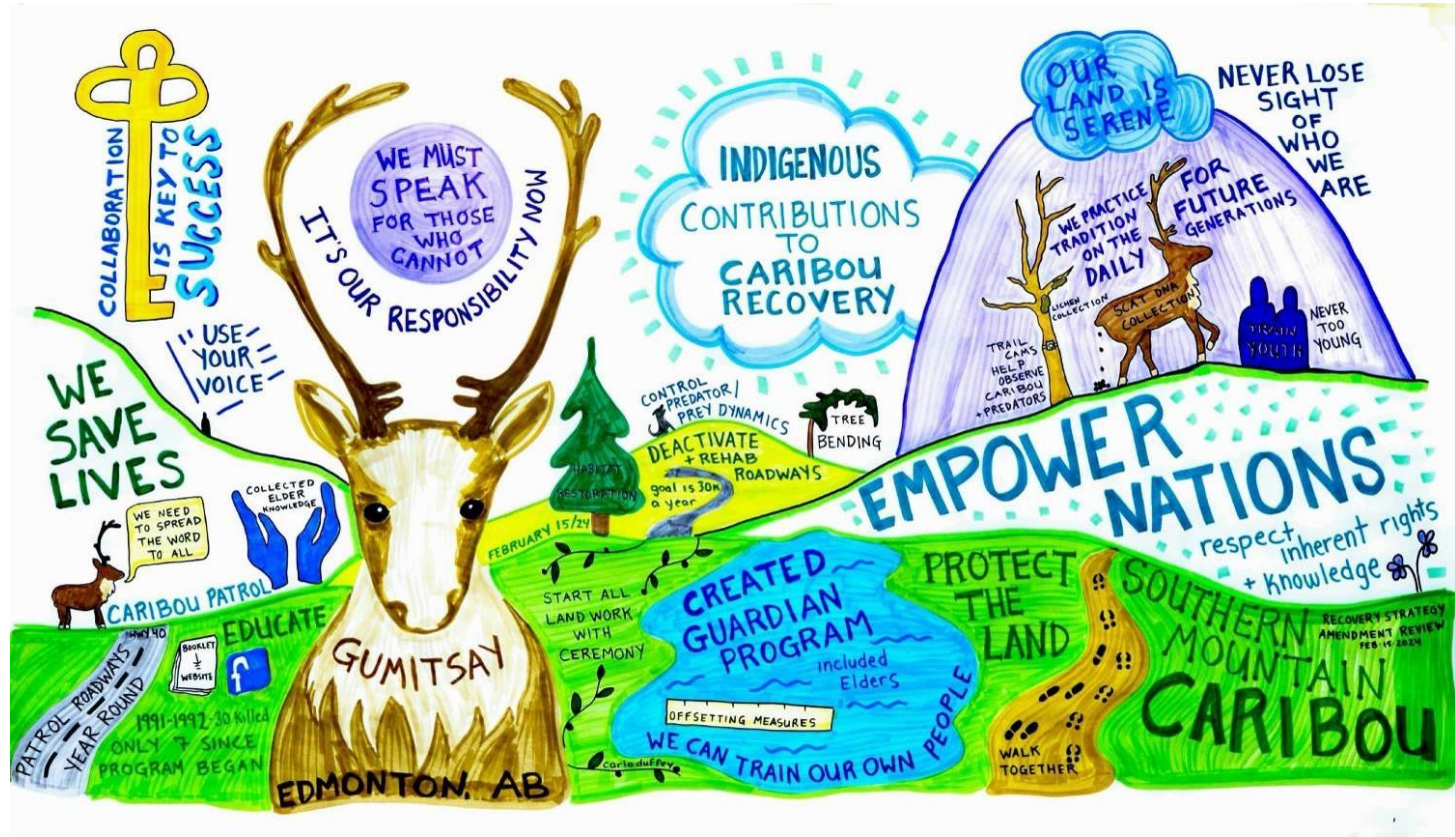 COLLABORATION
IS KEY TO
SUCCESS
"USE
YOUR
VOICE"
WE
SAVE
LIVES
WE NEED
TO SPREAD
THE WORD
TO ALL
COLLECTED
ELDER
KNOWLEDGE
CARIBOU PATROL
HWY 40
PATROL ROADWAYS
YEAR ROUND
EDUCATE
BOOKLET
+
WEBSITE
f
1991-1992-30 killed
ONLY 7 SINCE
PROGRAM BEGAN
WE MUST
SPEAK
FOR THOSE
WHO
CANNOT
IT'S OUR RESPONSIBILITY NOW
GUMITSAY
EDMONTON, AB
INDIGENOUS
CONTRIBUTIONS
TO
CARIBOU
RECOVERY
HABITAT
RESTORATION
FEBRUARY 15/24
CONTROL
PREDATOR/
PREY DYNAMICS
DEACTIVATE
+ REHAB
ROADWAYS
goal is 30K
a year
TREE
BENDING
START ALL
LAND WORK
WITH
CEREMONY
carleduffey
CREATED
GUARDIAN
PROGRAM
included
Elders
OFFSETTING MEASURES
WE CAN TRAIN OUR OWN PEOPLE
OUR
LAND IS
SERENE
NEVER LOSE
SIGHT
OF
WHO
WE
ARE
WE PRACTICE
TRADITION
ON THE
DAILY
FOR
FUTURE
GENERATIONS
LICHEN
COLLECTION
SCAT DNA
COLLECTION
TRAIL
CAMS
HELP
OBSERVE
CARIBOU
+ PREDATORS
TRAIN
YOUTH
NEVER
TOO
YOUNG
EMPOWER
NATIONS
respect
inherent rights
+ knowledge
PROTECT
THE
LAND
WALK
TOGETHER
SOUTHERN
MOUNTAIN
CARIBOU
RECOVERY STRATEGY
AMENDMENT REVIEW
FEB·15·2024